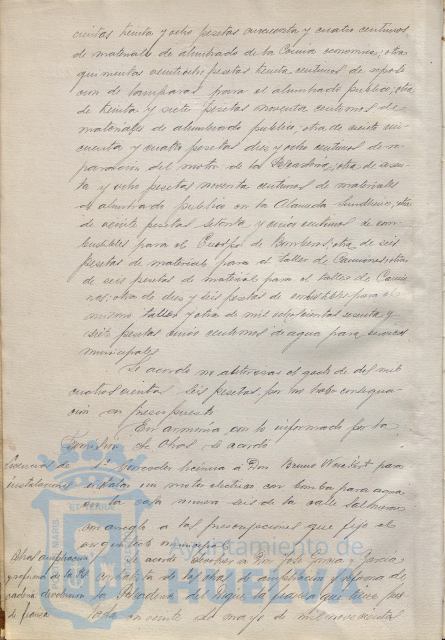 cientas treinta y ocho pesetas cincuenta y cuatro centimos
de materiales de alumbrado de la Cocina economica; otra
quinientas veintiocho pesetas treinta centimos de reposi
cion de lamparas para el alumbrado publico; otra
de treinta y siete pesetas noventa centimos de
materiales de alumbrado publico; otra de ciento cin
cuenta y cuatro pesetas diez y ocho centimos de re
paracion del motor de la otra de sesen
ta y ocho pesetas noventa centimos de materiales
de alumbrado publico en la Alameda otra
de veinte pesetas setenta y cinco centimos de com
bustibles para el Cuerpo de Bomberos; otra de seis
pesetas de materiales para el taller de Camiones; otra
de seis pesetas de material para el taller de Camio
nes; otra de diez y seis pesetas de combustibles para el
mismo taller y otra de mil setecientas sesenta y
siete pesetas cinco centimos de agua para servicios
municipales
Se acordo el gasto de dos mil
cuatrocientas seis pesetas por no haber consigna
cion en presupuesto
En armonia con lo informado por la
Comision de Obras se acordó
Licencias de 1º Conceder licencia a Don Bruno para
instalaciones instalar un motor electrico con bomba para agua
en la casa numero seis de la calle
con arreglo a las prescripciones que fijo el
municipal
Obras ampliacion Se acordó a Don José García
y reforma de la contratista de las obras de ampliacion y reforma de
la del la fianza que tiene
de fianza en veinte de mayo de mil novecientos
Ayuntamiento de